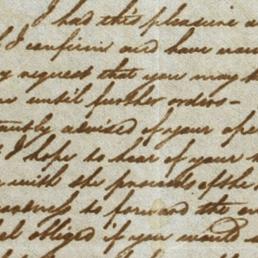 I had this pleasure
I confirm and have
request that you may
until further orders-
advised of your
I hope to hear of your
with the proceeds of the
to forward the
obliged if you would